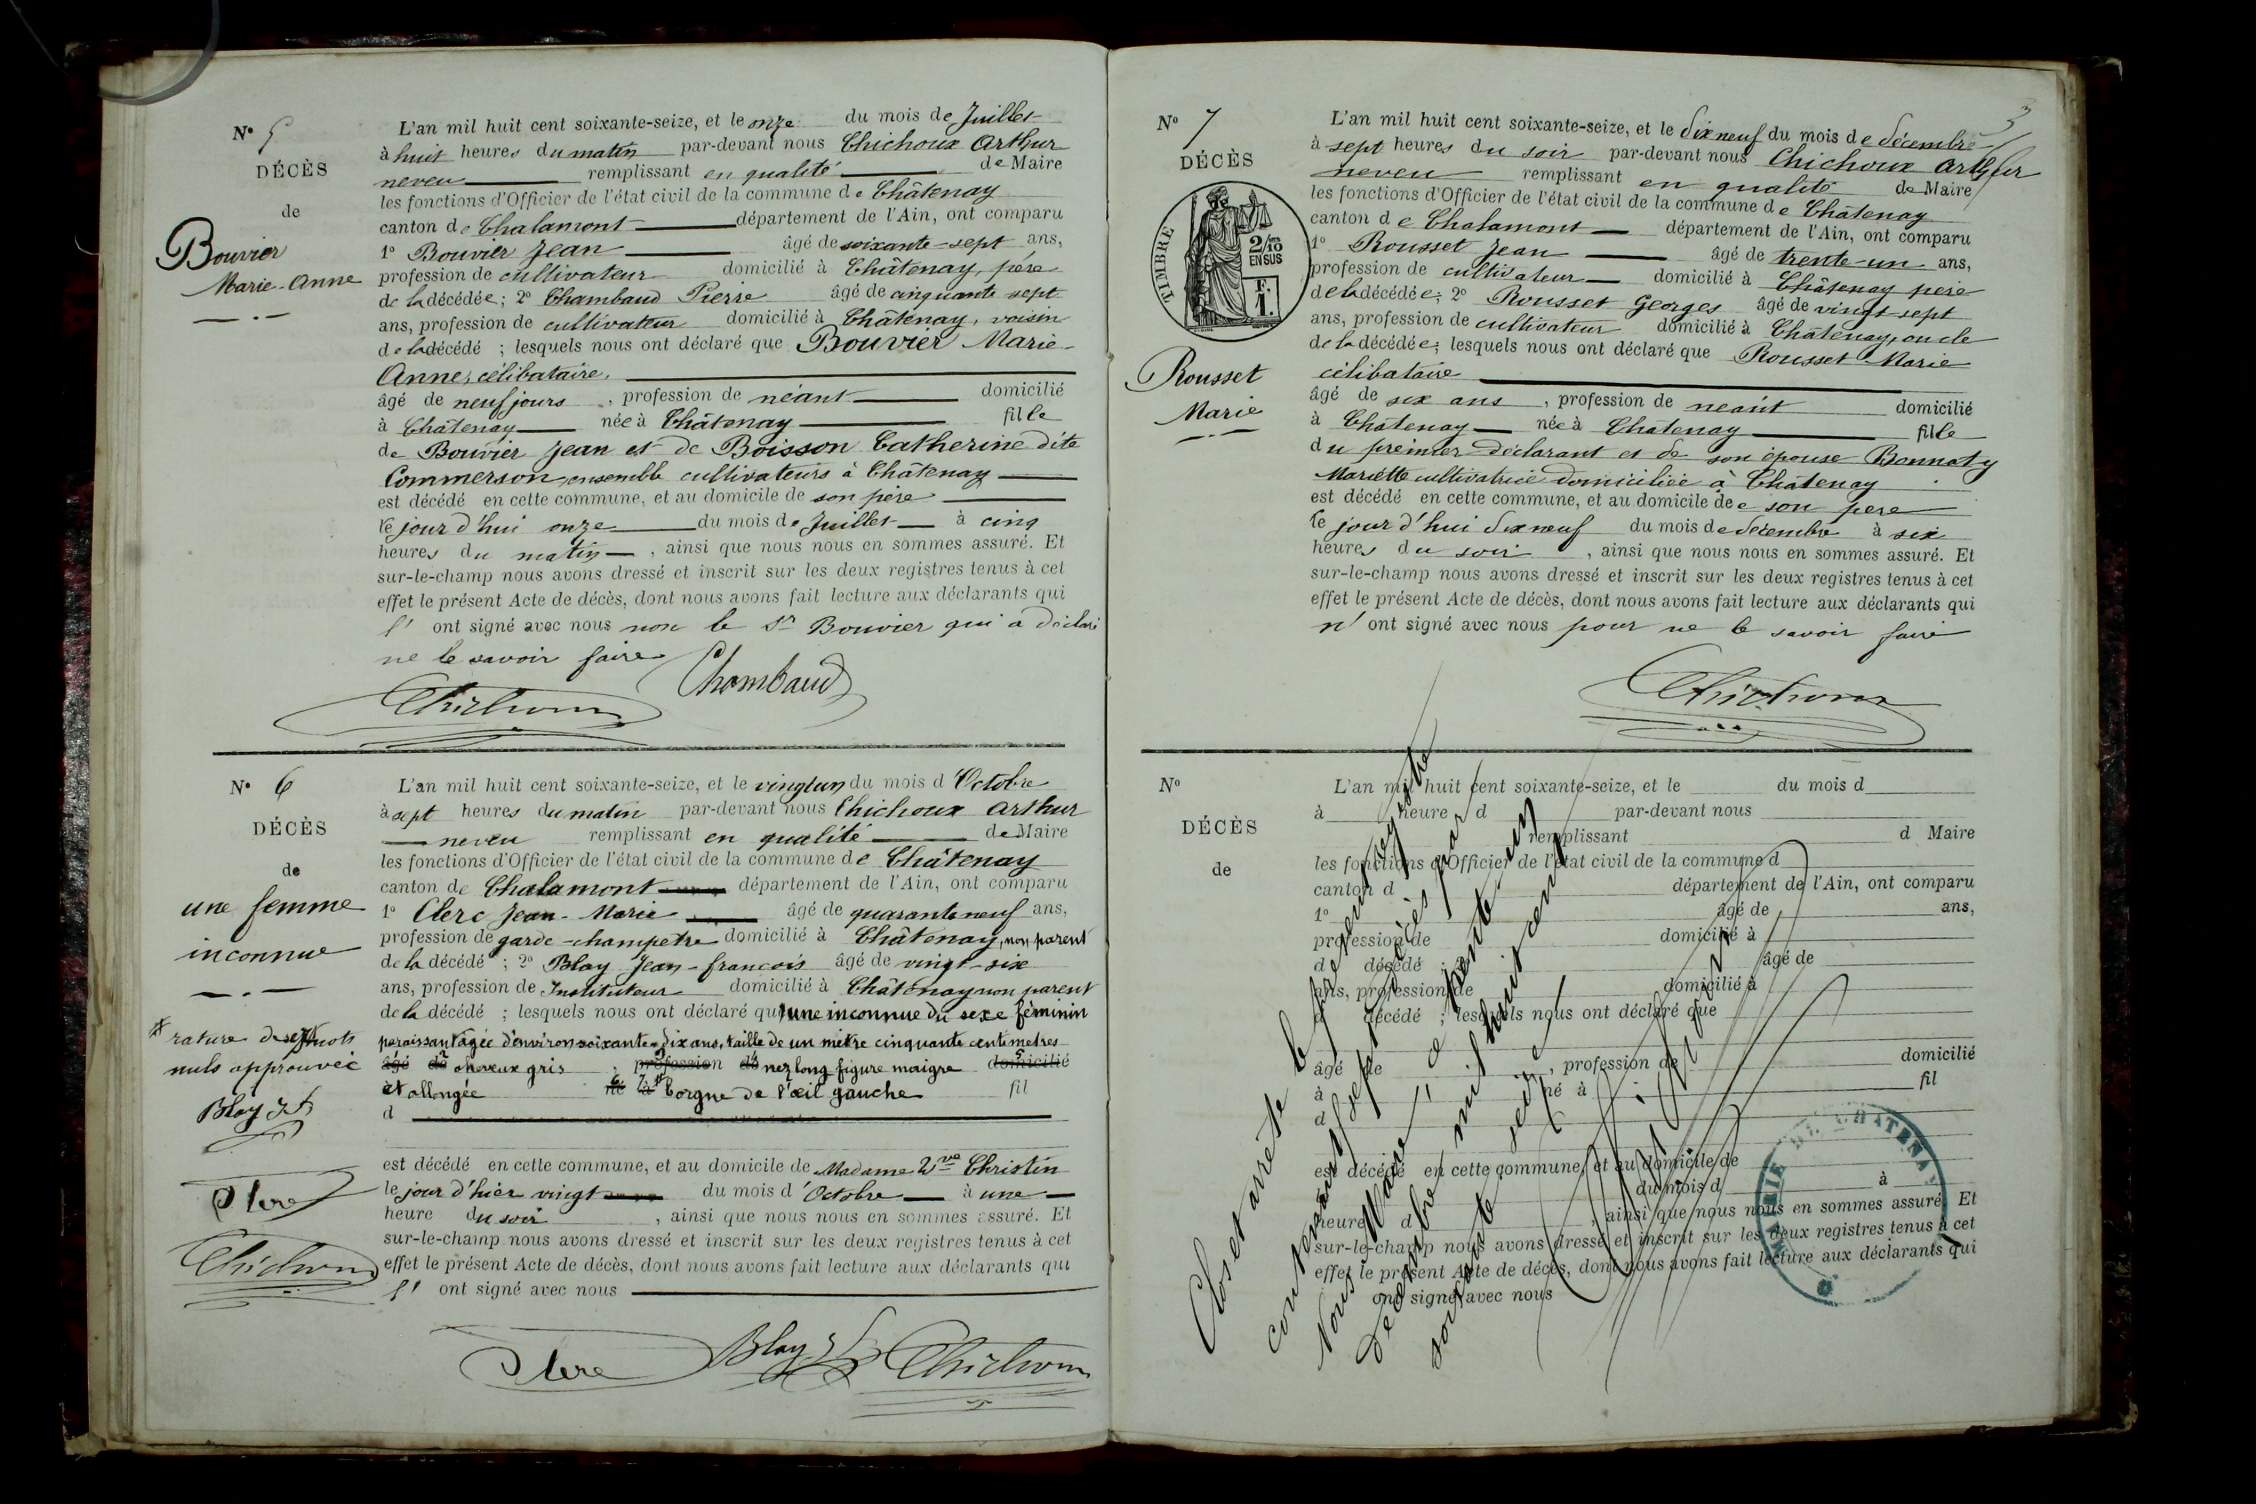 N° 5
DÉCÈS
de
Bouvier
Marie-Anne
L'an mil huit cent soixante-seize, et le onze du mois de Juillet
à huit heures du matin par-devant nous Chichoux Arthur
neveu remplissant en qualité de Maire
les fonctions d'Officier de l'état civil de la commune de Châtenay
canton de Chalamont département de l'Ain, ont comparu
1° Bouvier Jean âgé de soixante-sept ans,
profession de cultivateur domicilié à Châtenay, père
de la décédée ; 2° Chambaud Pierre âgé de cinquante sept
ans, profession de cultivateur domicilié à Châtenay, voisin
de la décédé ; lesquels nous ont déclaré que Bouvier Marie-
Anne, célibataire,
âgé de neuf jours , profession de néant domicilié
à Châtenay née à Châtenay fille
de Bouvier Jean et de Boisson Catherine dite
Commerson, ensemble cultivateurs à Châtenay
est décédé en cette commune, et au domicile de son père
le jour d'hui onze du mois de Juillet à cinq
heures du matin , ainsi que nous nous en sommes assuré. Et
sur-le-champ nous avons dressé et inscrit sur les deux registres tenus à cet
effet le présent Acte de décès, dont nous avons fait lecture aux déclarants qui
l' ont signé avec nous non le Sr Bouvier qui a déclaré
ne le savoir faire
Chambaud
Chichoux
N° 6
DÉCÈS
de
une femme
inconnue
rature de sept mots
nuls approuvée
Blay Jf
Clerc
Chichoux
L'an mil huit cent soixante-seize, et le vingt un du mois d'Octobre
à sept heures du matin par-devant nous Chichoux Arthur
neveu remplissant en qualité de Maire
les fonctions d'Officier de l'état civil de la commune de Châtenay
canton de Chalamont département de l'Ain, ont comparu
1° Clerc Jean-Marie âgé de quarante neuf ans,
profession de garde-champetre domicilié à Châtenay, non parent
de la décédé ; 2° Blay Jean-francois âgé de vingt-six
ans, profession de Instituteur domicilié à Châtenay non parent
de la décédé ; lesquels nous ont déclaré qu'une inconnue du sexe féminin
paraissant âgée d'environ soixante-dix ans, taille de un mètre cinquante centimetres
âgé de cheveux gris , profession de nez long figure maigre domicilié
et allongée né à borgne de l'œil gauche fil
d
est décédé en cette commune, et au domicile de Madame Vve Christin
le jour d'hier vingt du mois d'Octobre à une
heure du soir , ainsi que nous nous en sommes assuré. Et
sur-le-champ nous avons dressé et inscrit sur les deux registres tenus à cet
effet le présent Acte de décès, dont nous avons fait lecture aux déclarants qui
l' ont signé avec nous
Clerc Blay Jf Chichoux
3
N° 7
DÉCÈS
TIMBRE
2/10 EN SUS
F. 1.
Rousset
Marie
L'an mil huit cent soixante-seize, et le dix neuf du mois de décembre
à sept heures du soir par-devant nous Chichoux Arthur
neveu remplissant en qualité de Maire
les fonctions d'Officier de l'état civil de la commune de Châtenay
canton de Chalamont département de l'Ain, ont comparu
1° Rousset Jean âgé de trente-un ans,
profession de cultivateur domicilié à Châtenay père
de la décédée ; 2° Rousset Georges âgé de vingt-sept
ans, profession de cultivateur domicilié à Châtenay, oncle
de la décédée ; lesquels nous ont déclaré que Rousset Marie
célibataire
âgé de six ans , profession de néant domicilié
à Châtenay née à Châtenay fille
du premier déclarant et de son épouse Bonnaty
Mariette cultivatrice domiciliée à Châtenay
est décédé en cette commune, et au domicile de son père
le jour d'hui dix neuf du mois de décembre à six
heures du soir , ainsi que nous nous en sommes assuré. Et
sur-le-champ nous avons dressé et inscrit sur les deux registres tenus à cet
effet le présent Acte de décès, dont nous avons fait lecture aux déclarants qui
n' ont signé avec nous pour ne le savoir faire
Chichoux
N°
DÉCÈS
de
L'an mil huit cent soixante-seize, et le du mois d
à heure d par-devant nous
remplissant d Maire
les fonctions d'Officier de l'état civil de la commune d
canton d département de l'Ain, ont comparu
1° âgé de ans,
profession de domicilié à
d décédé ; 2° âgé de
ans, profession de domicilié à
d décédé ; lesquels nous ont déclaré que
âgé de , profession de domicilié
à né à fil
d
est décédé en cette commune, et au domicile de
du mois d à
heure d , ainsi que nous nous en sommes assuré. Et
sur-le-champ nous avons dressé et inscrit sur les deux registres tenus à cet
effet le présent Acte de décès, dont nous avons fait lecture aux déclarants qui
ont signé avec nous
Clos et arrêté le présent registre
contenant sept décès par
Nous Maire ce trente un
décembre mil huit cent
soixante seize
MAIRIE DE CHATENAY